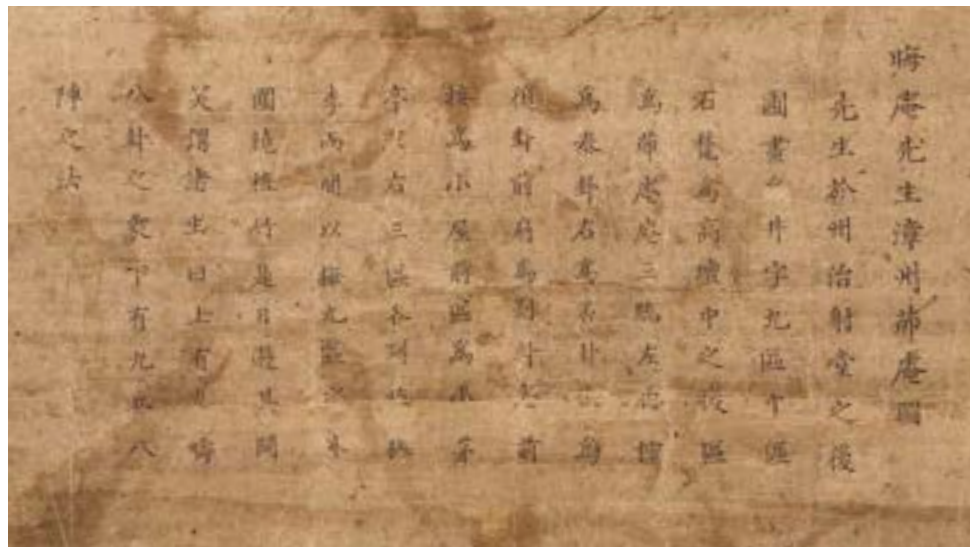 晦庵先生漳州茆庵圖
先生於州治射堂之後
圃畫為井字九區中區
石甃為高壇中之後區
為茆庵庵三牎左牎櫺
為泰卦右為否卦後為
復卦前扇為剝卦庵前
接為小屋前區為小茅
亭左右三區各列植桃
李而間以梅九區之外
圍繞植竹是日遊其間
笑謂諸生曰上有九疇
八卦之象下有九丘八
陣之法